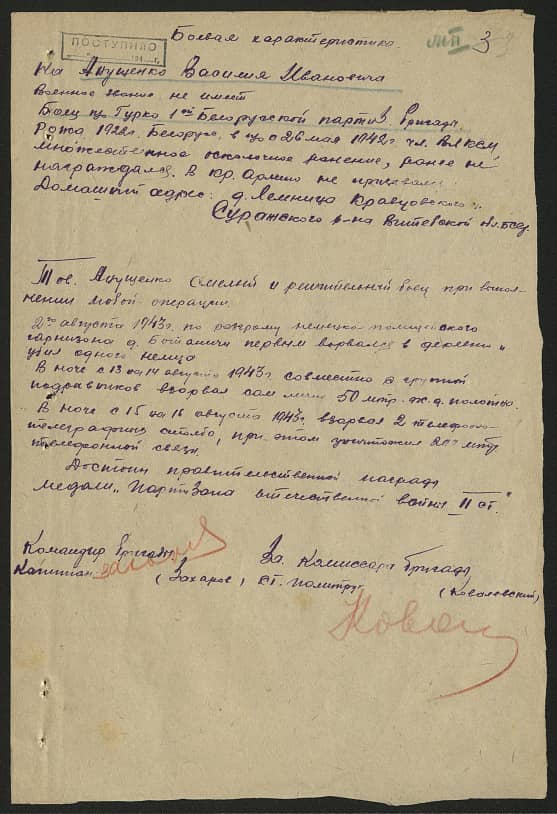 ПОСТУПИЛО
194 г.
МП 3
Боевая характеристика.
На Анущенко Василия Ивановича
Военное звание не имеет
Боец 1ой Белорусской партиз. бригады.
Рожд 1926г. Белорус, в п/о с 26 мая 1942г. чл. ВЛКСМ
множественное осколочное ранение, ранее не
награждался. В кр. Армию не призывался
Домашний адрес: д. Лемница Кравцовского
Суражского р-на Витебской обл. БССР
Тов. Анущенко смелый и решительный боец при выпол-
нении любой операции.
2го августа 1943г. по разгрому немецко-полицейского
гарнизона д. первым ворвался в деревню и
убил одного немца
В ночь с 13 на 14 августа 1943г. совместно с группой
подрывников взорвал сам лично 50 мтр. ж.д. полотна.
В ночь с 15 на 16 августа 1943г. взорвал 2 телефоно-
телеграфных столба, при этом уничтожил мтр
телефонной связи.
Достоин правительственной награды
медали „Партизана отечественной войны II ст."
Командир бригады За. Комиссара бригады
Капитан (Захаров) ст. политрук (Коваловский)